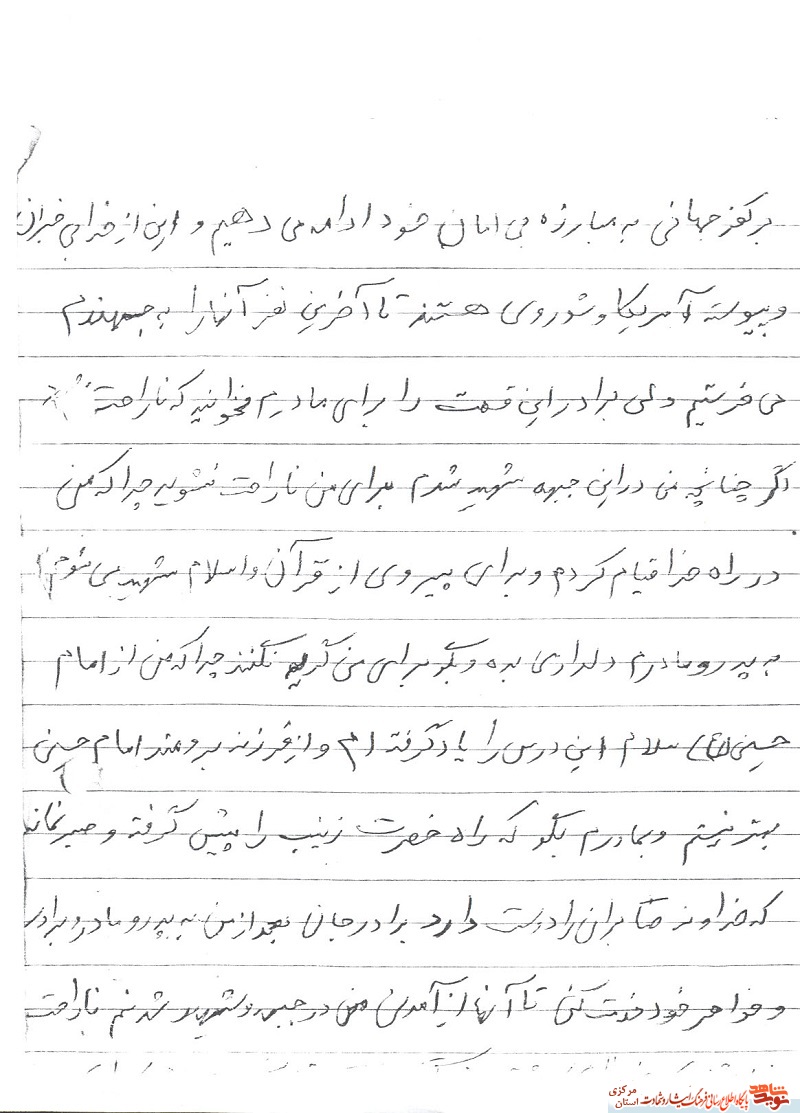 بر کفر جهانی به مبارزه بی امان خود ادامه می دهیم و این از خدا بی خبران
و پیوسته آمریکا و شوروی هستند تا آخرین نفر آنها را به جهندم
می فرستیم ولی برادر این قسمت را برای مادرم نخوانید که ناراحت
اگر چنانچه من در این جبهه شهید شدم برای من ناراحت نشوید چرا که من
در راه خدا قیام کردم و برای پیروی از قرآن و اسلام شهید می شوم
به پدر و مادرم دلداری بده و بگو برای من گریه نکنند چرا که من از امام
حسین (ع) سلام این درس را یاد گرفته ام و از فرزند برومند امام حسین
بهتر نیستم و بمادرم بگو که راه حضرت زینب را پیش گرفته و صبر نماید
که خداوند صابران را دوست دارد برادر جان بعد از من به پدر و مادر و برادر
و خواهر خود خدمت کنی تا آنها از آمدن من در جبهه و شهید شدنم ناراحت
نوید شاهد پایگاه اطلاع رسانی فرهنگ ایثار و شهادت استان مرکزی